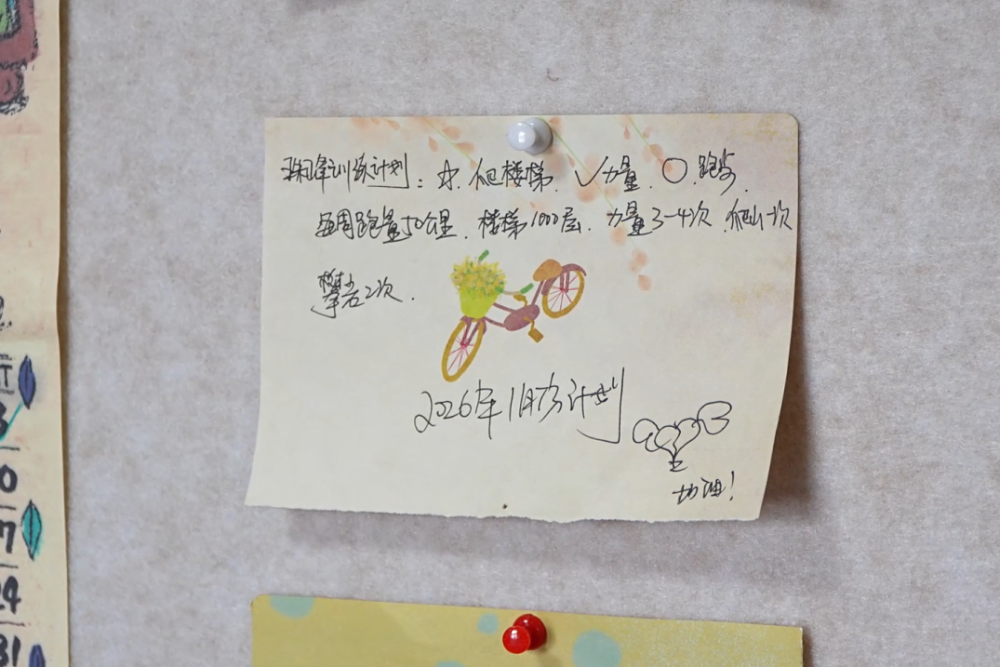 珠峰训练计划：☆.爬楼梯.✓力量.○.跑步.
每周跑量50公里.楼梯1000层.力量3-4次.爬山一次
攀岩2次.
2026年1月份计划
加油！
7
24
31